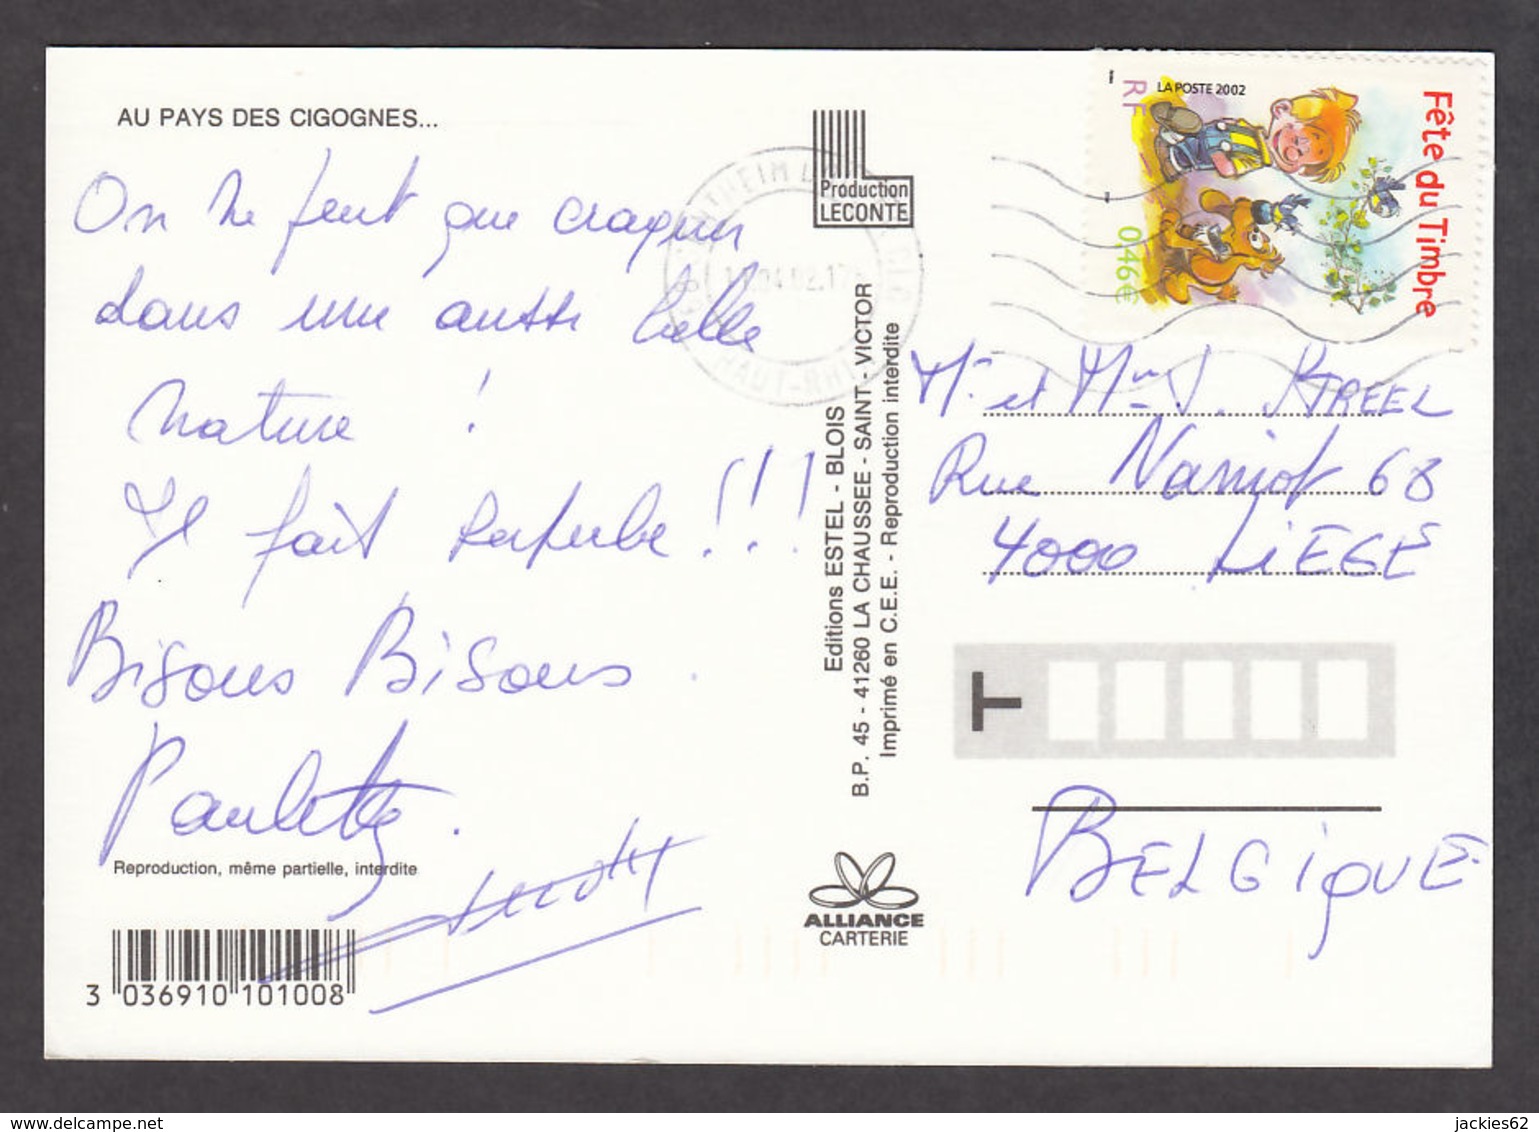 AU PAYS DES CIGOGNES...
On ne peut que craquer
dans une aussi belle
nature !
Il fait superbe !!!
Bisous Bisous.
Paulette.
Reproduction, même partielle, interdite
3 036910 101008
Production
LECONTE
Editions ESTEL - BLOIS
B.P. 45 - 41260 LA CHAUSSEE - SAINT - VICTOR
Imprimé en C.E.E. - Reproduction interdite
ALLIANCE
CARTERIE
HAUT-RHIN
RF
LA POSTE 2002
Fête du Timbre
0,46€
Mr et Mme J. KREEL
Rue Naniot 68
4000 LIEGE
T
BELGIQUE
jackies62